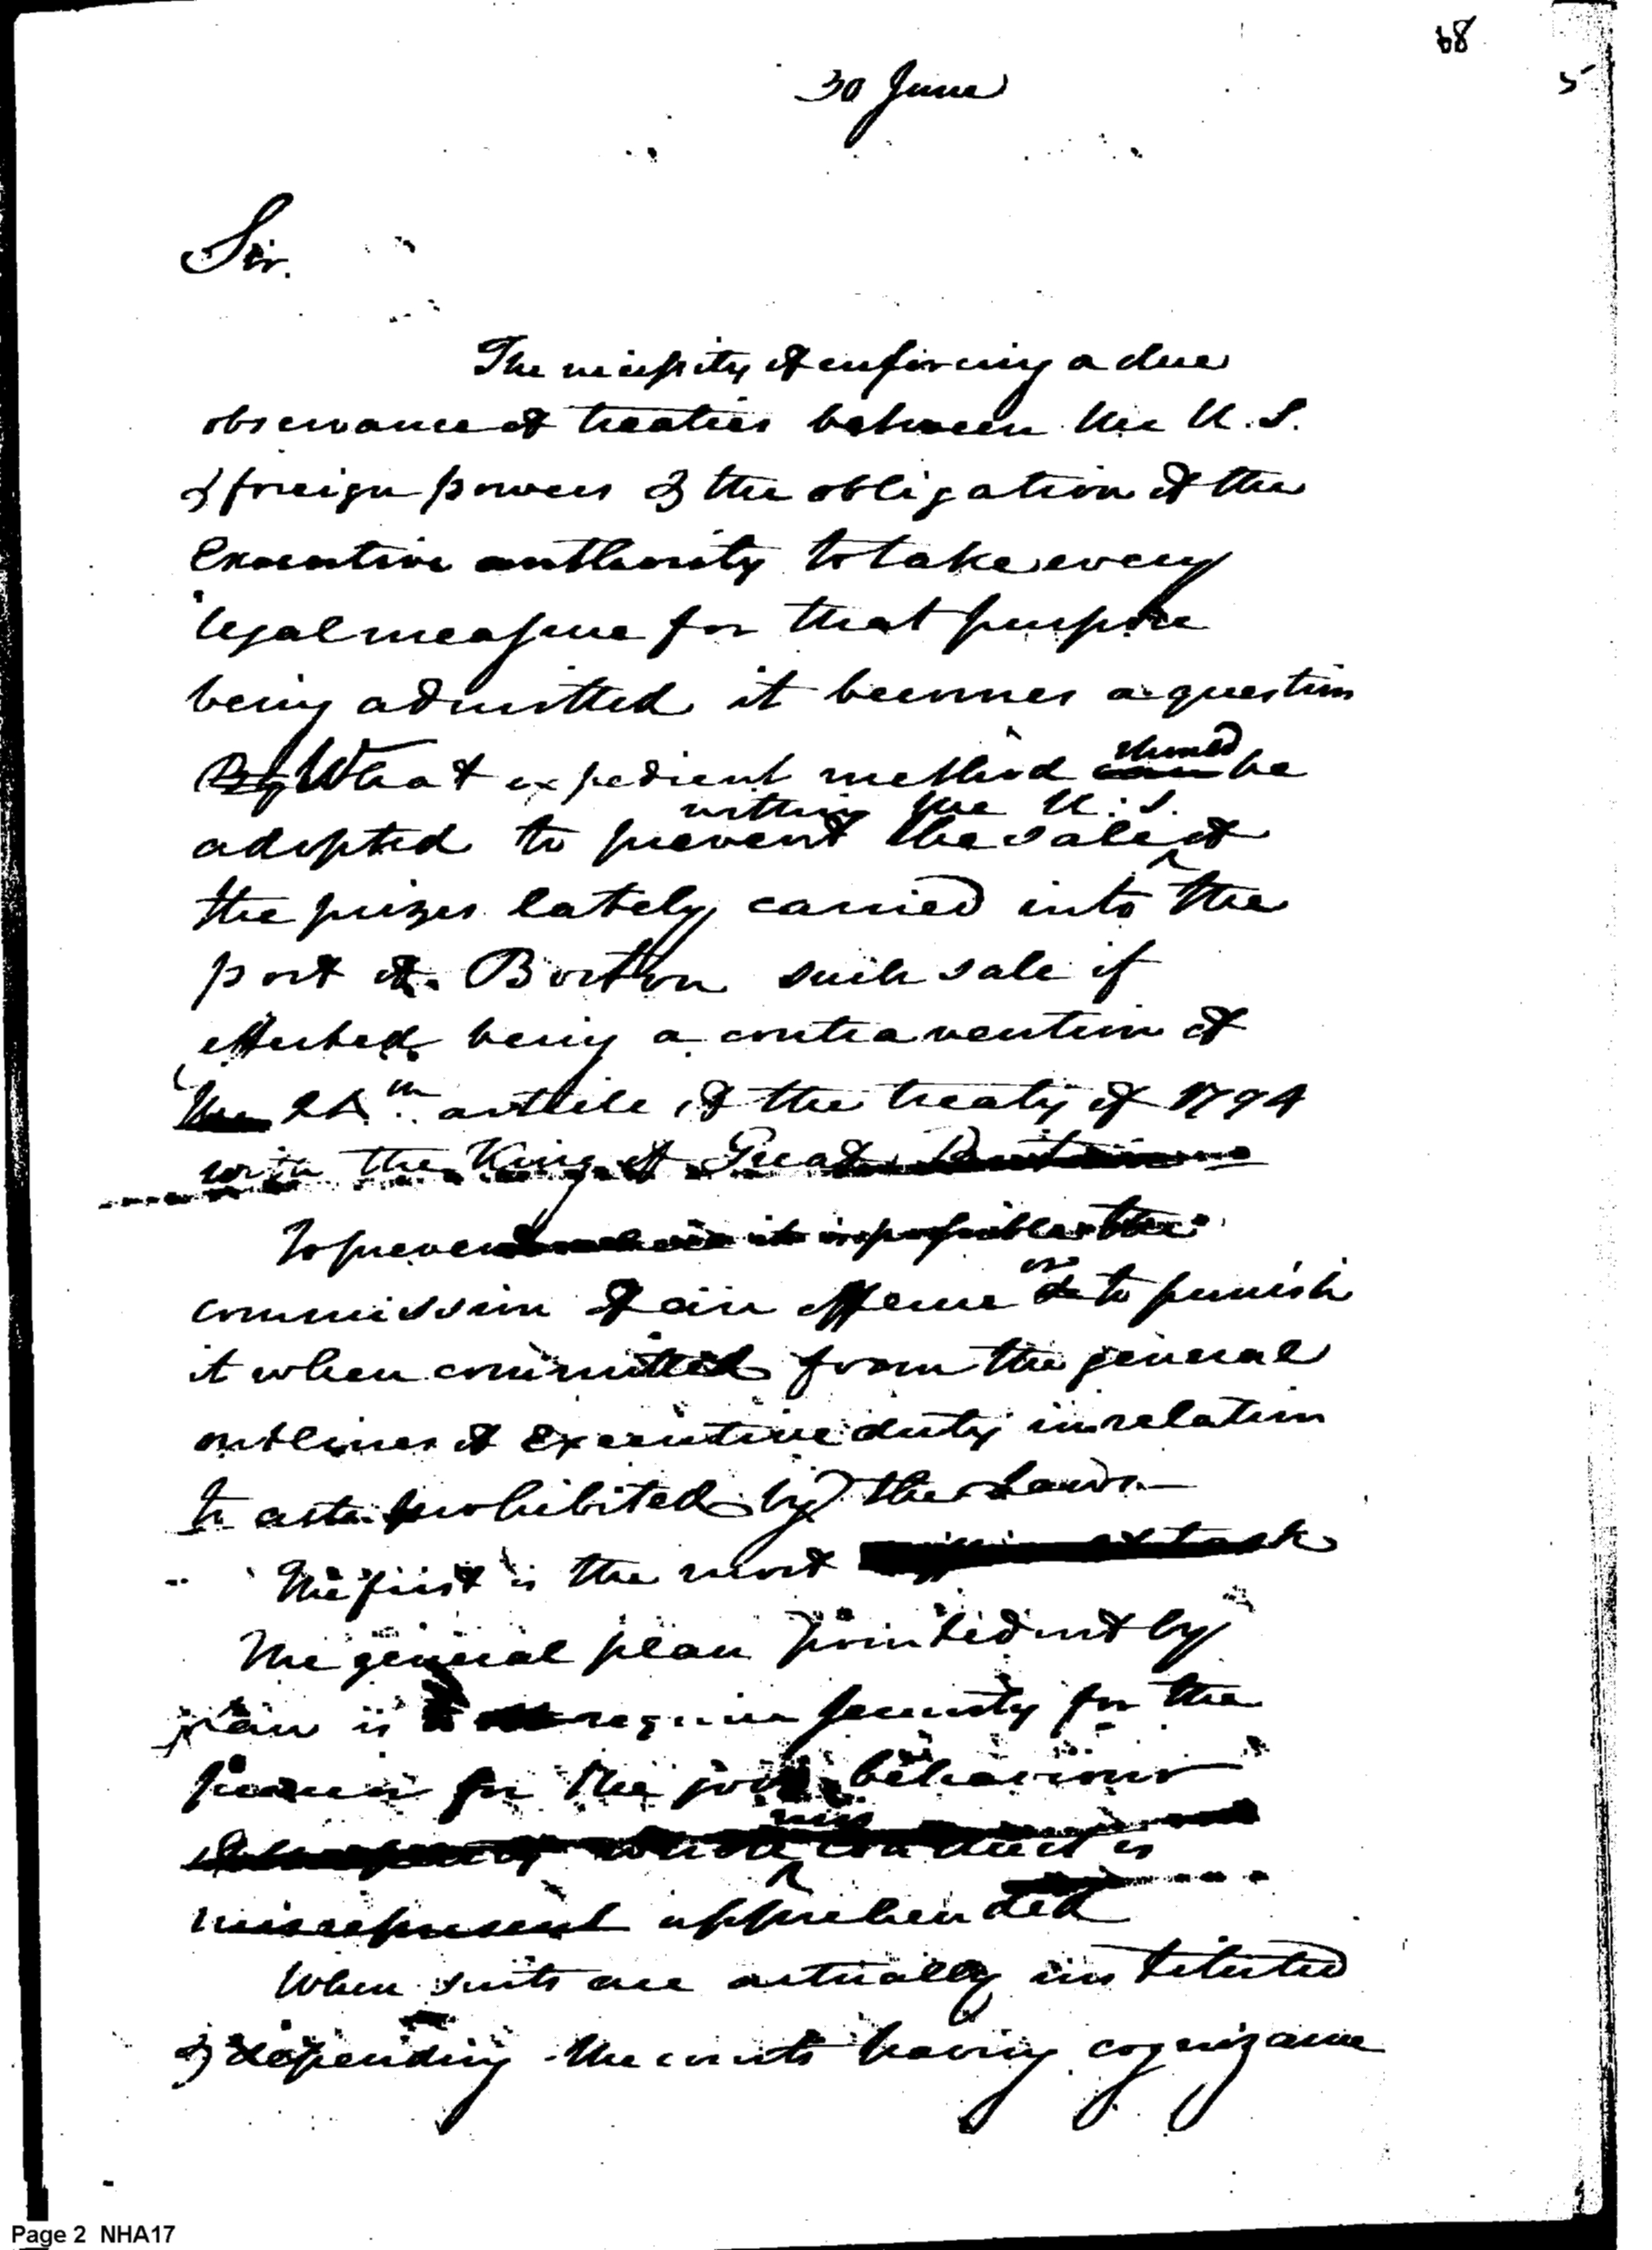 68
5
30 June
Sir.
The necessity of enforcing a due
observance of treaties between the U.S.
& foreign powers & the obligation of the
Executive authority to take every
legal measure for that purpose
being admitted it becomes a question
By What expedient method can should be
adopted to prevent the sale within the U.S. of
the prizes lately carried into the
port of Boston such sale if
effected being a contravention of
the 24th article of the treaty of 1794
with the King of Great Britain
To prevent the
commission of an offence or to punish
it when committed from the general
outlines of Executive duty in relation
to acts prohibited by the Laws.—
The first is the most task
The general plan pointed out by
is require security for the
for the good behaviour
whose conduct is
misrepresent apprehended
When suits are actually instituted
& depending the courts having cognizance
Page 2 NHA17